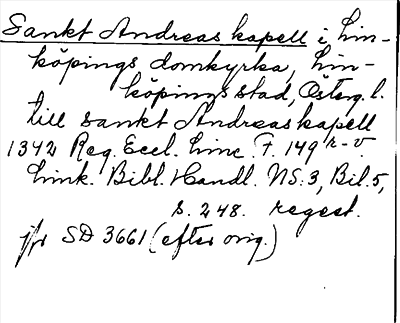 Sankt Andreas kapell i Lin-
köpings domkyrka, Lin-
köpings stad, Österg. l.
till sankt Andreas kapell
1342 Reg. Eccl. Linc. F. 149 r-v.
Link. Bibl. Handl. NS:3, Bil. 5,
s. 248. regest.
jfr SD 3661 (efter orig.)